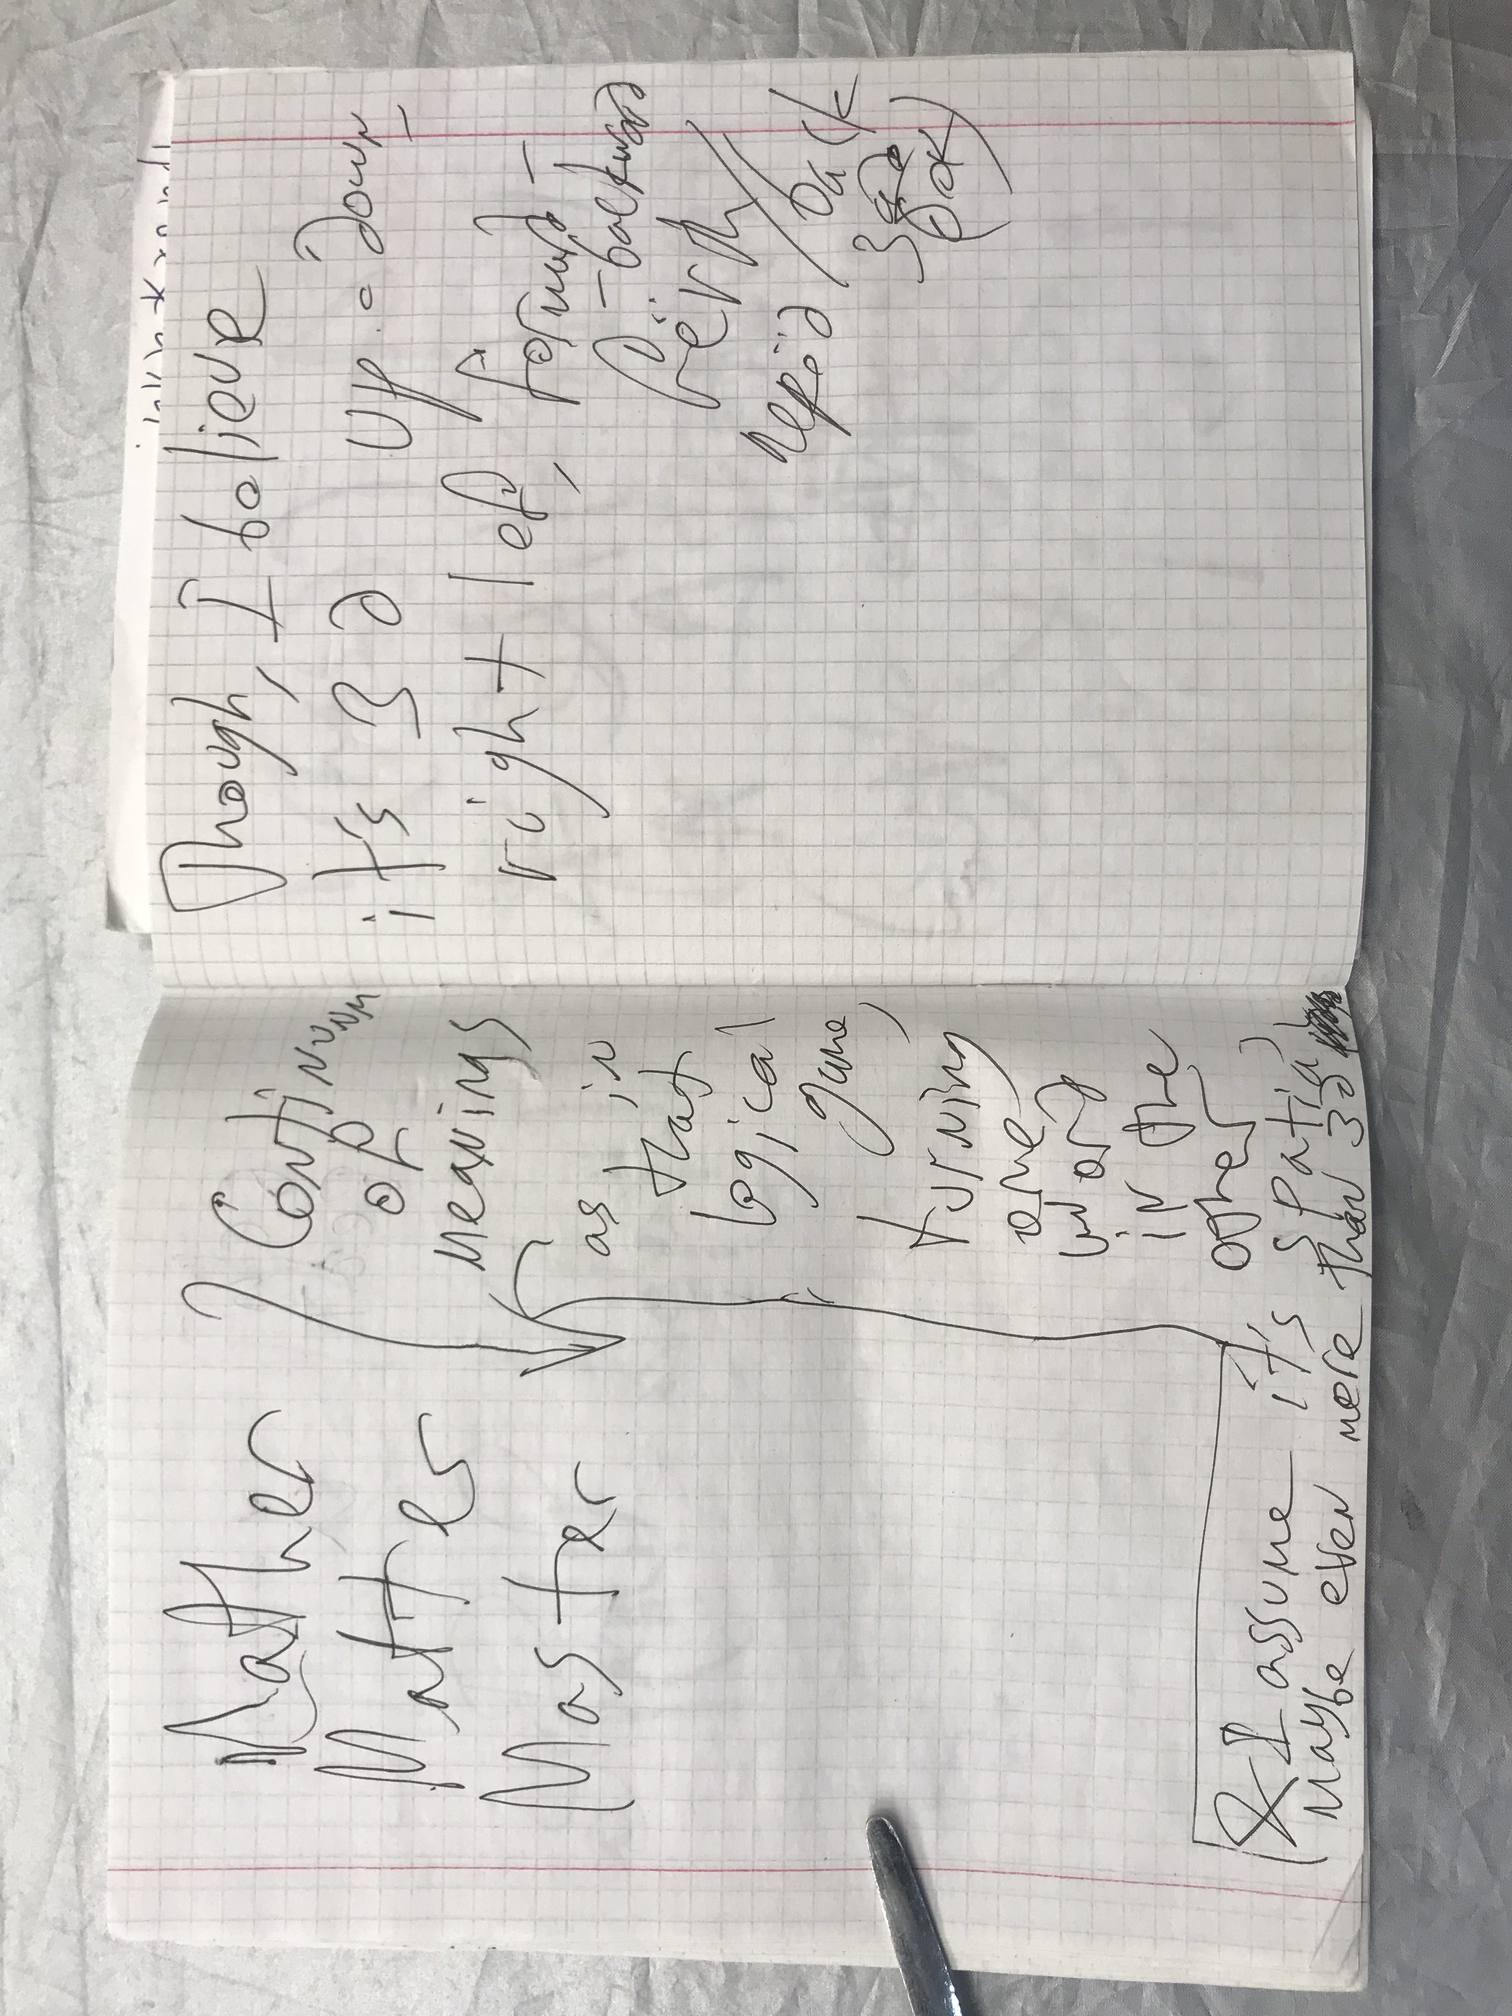 Mather
Matter
Master
Continuum
of
meanings
as in
that
logical
game,
turning
one
word
in the
other
& I assume it's spatial
(Maybe even more than 3d
Though, I believe
it's 3d up - down
right left, forward -
- backward
перёд / back
зад